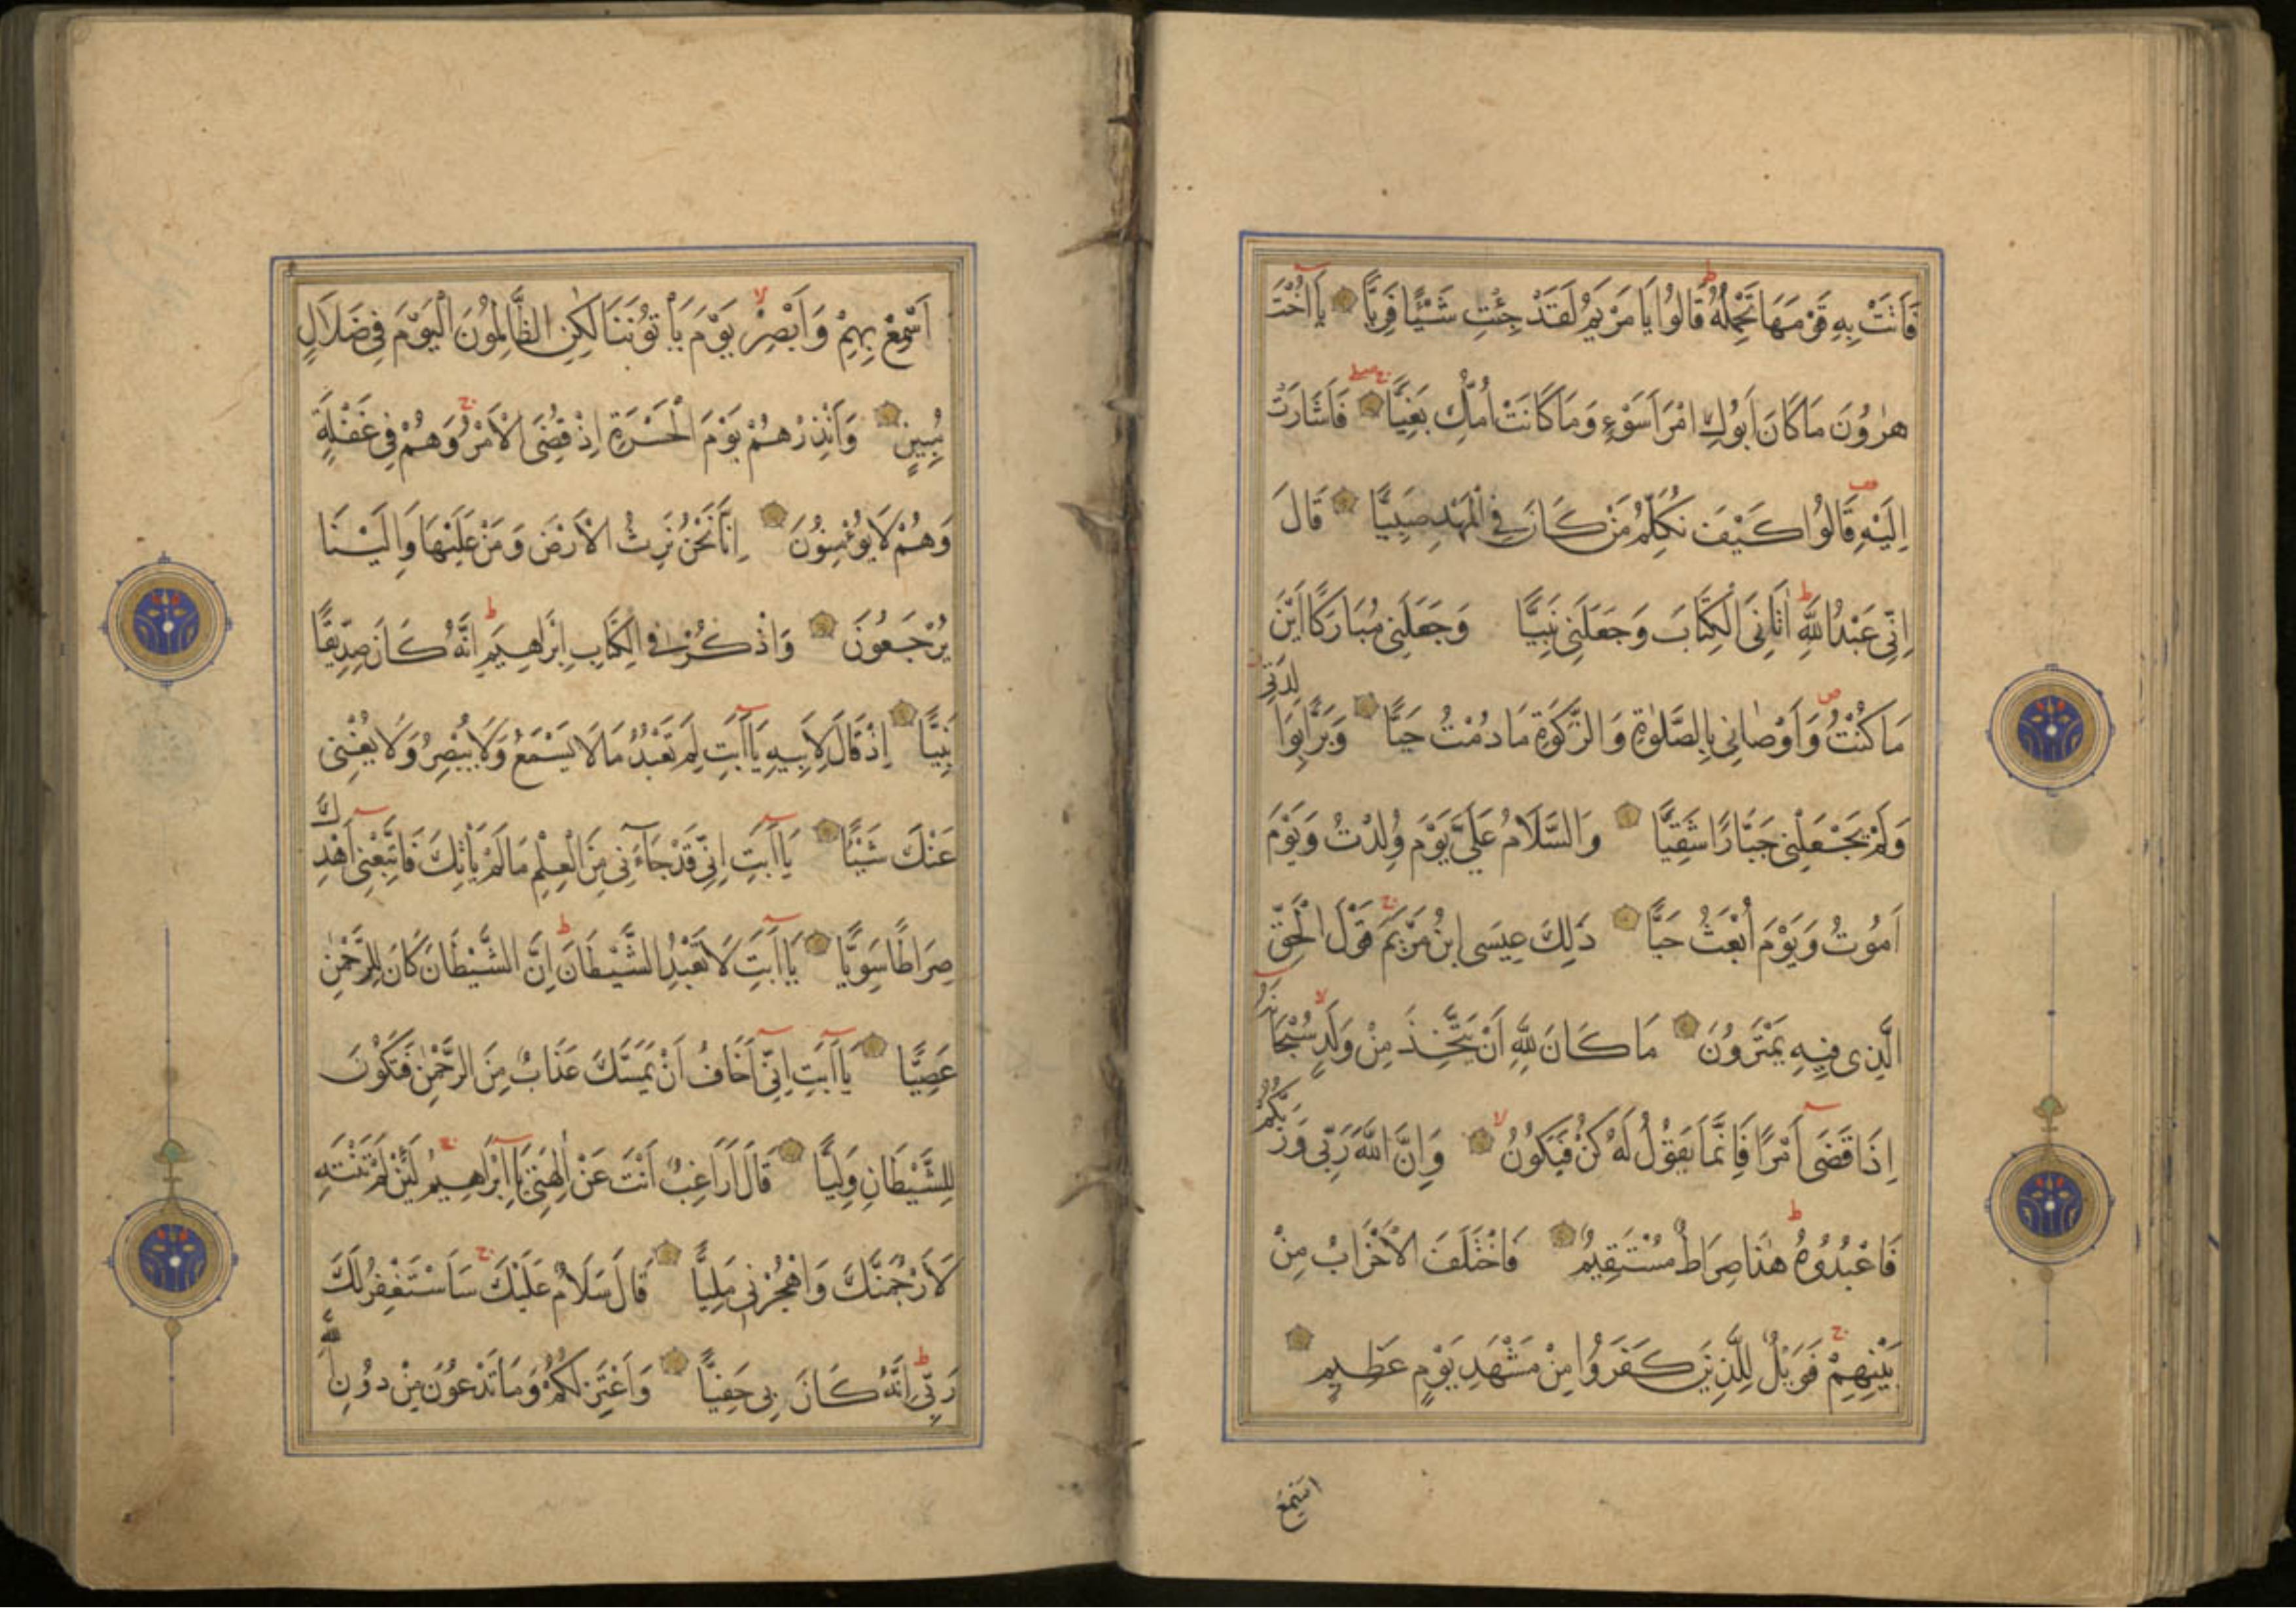 فَاَتَتْ بِهٖ قَوْمَهَا تَحْمِلُهُ ط قَالُوا يَا مَرْيَمُ لَقَدْ جِئْتِ شَيْئًا فَرِيًّا يَٓا اُخْتَ
هٰرُونَ مَا كَانَ اَبُوكِ امْرَاَ سَوْءٍ وَمَا كَانَتْ اُمُّكِ بَغِيًّا فَاَشَارَتْ
اِلَيْهِ قَالُوا كَيْفَ نُكَلِّمُ مَنْ كَانَ فِي الْمَهْدِ صَبِيًّا قَالَ
اِنِّي عَبْدُ اللّٰهِ ط اٰتَانِيَ الْكِتَابَ وَجَعَلَنِي نَبِيًّا وَجَعَلَنِي مُبَارَكًا اَيْنَ
مَا كُنْتُ ص وَاَوْصَانِي بِالصَّلٰوةِ وَالزَّكٰوةِ مَا دُمْتُ حَيًّا وَبَرًّا بِوَالِدَتِي
وَلَمْ يَجْعَلْنِي جَبَّارًا شَقِيًّا وَالسَّلَامُ عَلَيَّ يَوْمَ وُلِدْتُ وَيَوْمَ
اَمُوتُ وَيَوْمَ اُبْعَثُ حَيًّا ذٰلِكَ عِيسَى ابْنُ مَرْيَمَ ج قَوْلَ الْحَقِّ
الَّذِي فِيهِ يَمْتَرُونَ مَا كَانَ لِلّٰهِ اَنْ يَتَّخِذَ مِنْ وَلَدٍ لا سُبْحَانَهُ
اِذَا قَضٰٓى اَمْرًا فَاِنَّمَا يَقُولُ لَهُ كُنْ فَيَكُونُ لا وَاِنَّ اللّٰهَ رَبِّي وَرَبُّكُمْ
فَاعْبُدُوهُ ط هٰذَا صِرَاطٌ مُسْتَقِيمٌ فَاخْتَلَفَ الْاَحْزَابُ مِنْ
بَيْنِهِمْ ج فَوَيْلٌ لِلَّذِينَ كَفَرُوا مِنْ مَشْهَدِ يَوْمٍ عَظِيمٍ
اَسْمِعْ
اَسْمِعْ بِهِمْ وَاَبْصِرْ لا يَوْمَ يَاْتُونَنَا لٰكِنِ الظَّالِمُونَ الْيَوْمَ فِي ضَلَالٍ
مُبِينٍ وَاَنْذِرْهُمْ يَوْمَ الْحَسْرَةِ اِذْ قُضِيَ الْاَمْرُ ج وَهُمْ فِي غَفْلَةٍ
وَهُمْ لَا يُؤْمِنُونَ اِنَّا نَحْنُ نَرِثُ الْاَرْضَ وَمَنْ عَلَيْهَا وَاِلَيْنَا
يُرْجَعُونَ وَاذْكُرْ فِي الْكِتَابِ اِبْرَاهِيمَ ط اِنَّهُ كَانَ صِدِّيقًا
نَبِيًّا اِذْ قَالَ لِاَبِيهِ يَٓا اَبَتِ لِمَ تَعْبُدُ مَا لَا يَسْمَعُ وَلَا يُبْصِرُ وَلَا يُغْنِي
عَنْكَ شَيْئًا يَٓا اَبَتِ اِنِّي قَدْ جَٓاءَنِي مِنَ الْعِلْمِ مَا لَمْ يَاْتِكَ فَاتَّبِعْنِٓي اَهْدِكَ
صِرَاطًا سَوِيًّا يَٓا اَبَتِ لَا تَعْبُدِ الشَّيْطَانَ ط اِنَّ الشَّيْطَانَ كَانَ لِلرَّحْمٰنِ
عَصِيًّا يَٓا اَبَتِ اِنِّٓي اَخَافُ اَنْ يَمَسَّكَ عَذَابٌ مِنَ الرَّحْمٰنِ فَتَكُونَ
لِلشَّيْطَانِ وَلِيًّا قَالَ اَرَاغِبٌ اَنْتَ عَنْ اٰلِهَتِي يَٓا اِبْرَاهِيمُ ج لَئِنْ لَمْ تَنْتَهِ
لَاَرْجُمَنَّكَ وَاهْجُرْنِي مَلِيًّا قَالَ سَلَامٌ عَلَيْكَ ج سَاَسْتَغْفِرُ لَكَ
رَبِّي ط اِنَّهُ كَانَ بِي حَفِيًّا وَاَعْتَزِلُكُمْ وَمَا تَدْعُونَ مِنْ دُونِ اللّٰهِ